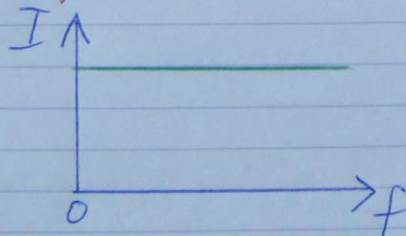 I
0
f